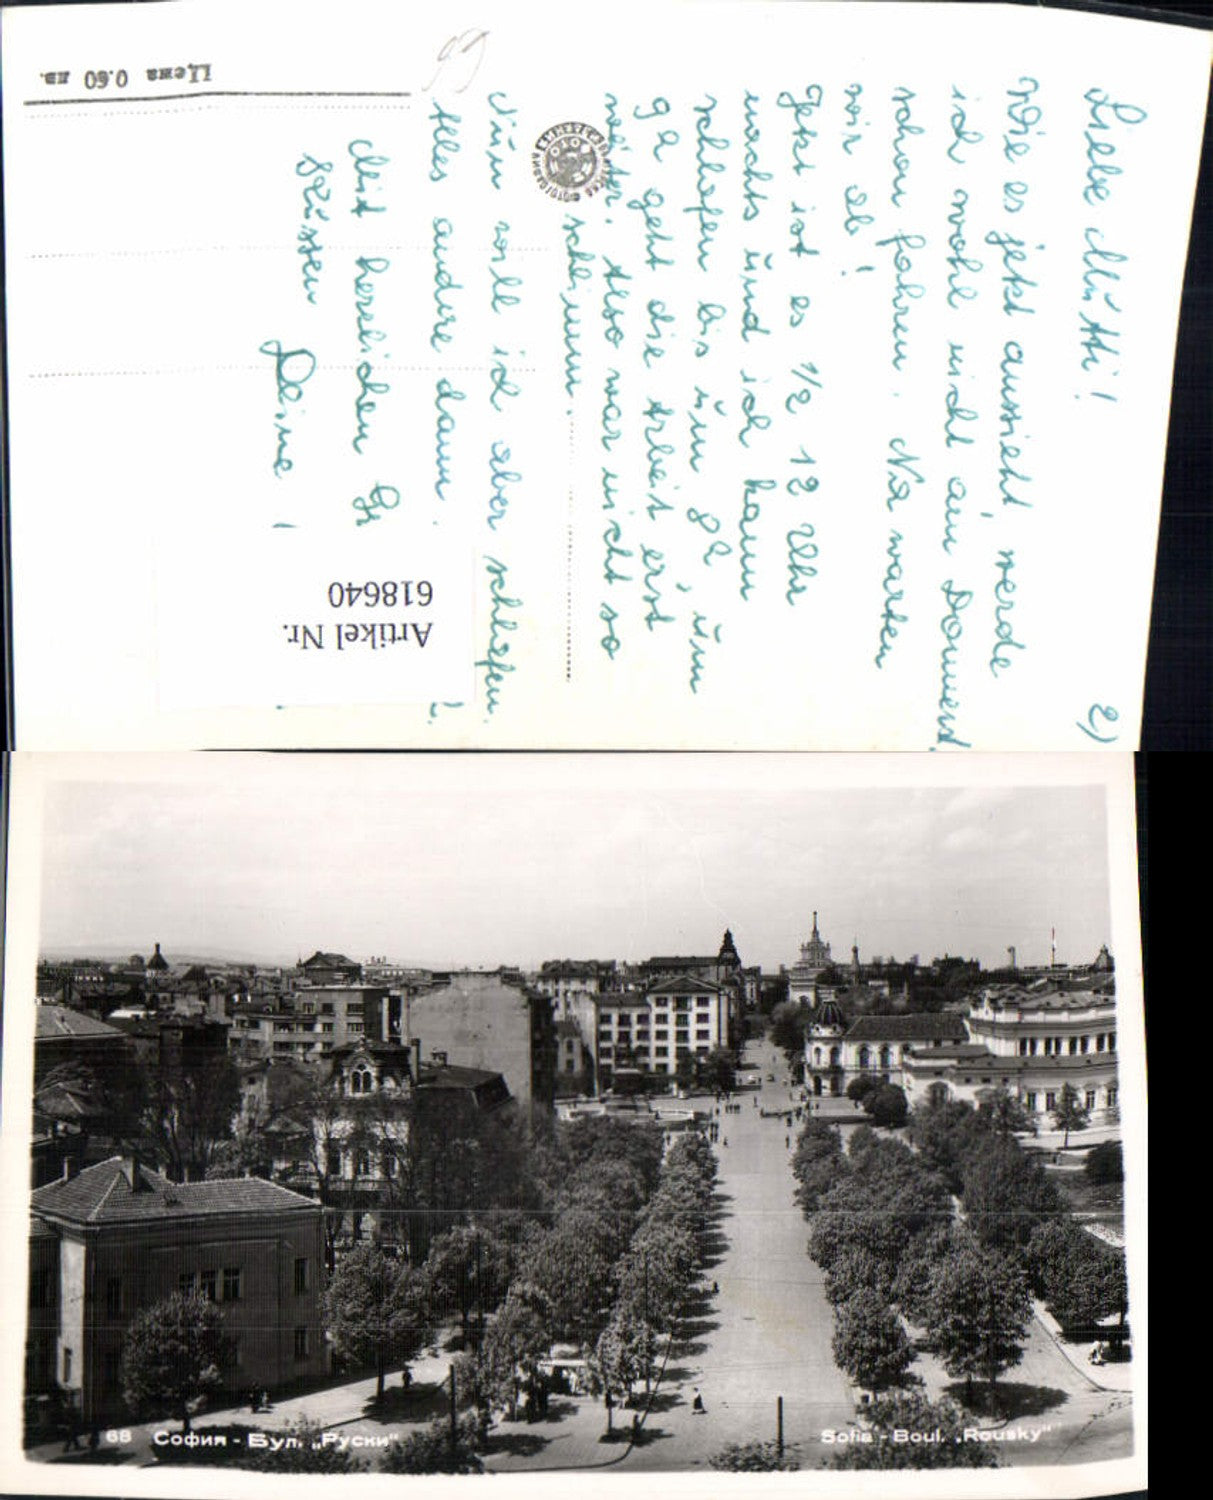 2)
Liebe Mutti!
Wie es jetzt aussieht, werde
ich wohl nicht am Donnerst.
schon fahren. Na warten
wir ab!
Jetzt ist es 1/2 12 Uhr
nachts und ich kann
schlafen bis um 8h, um
9h geht die Arbeit erst
weiter. Also war nicht so
schlimm.
Nun will ich aber schlafen.
Alles andere dann.
Mit herzlichen Gr
Küssen
Deine
Цена 0.60 лв.
Artikel Nr.
618640
68 София - Бул. „Руски“
Sofia - Boul. „Rousky“